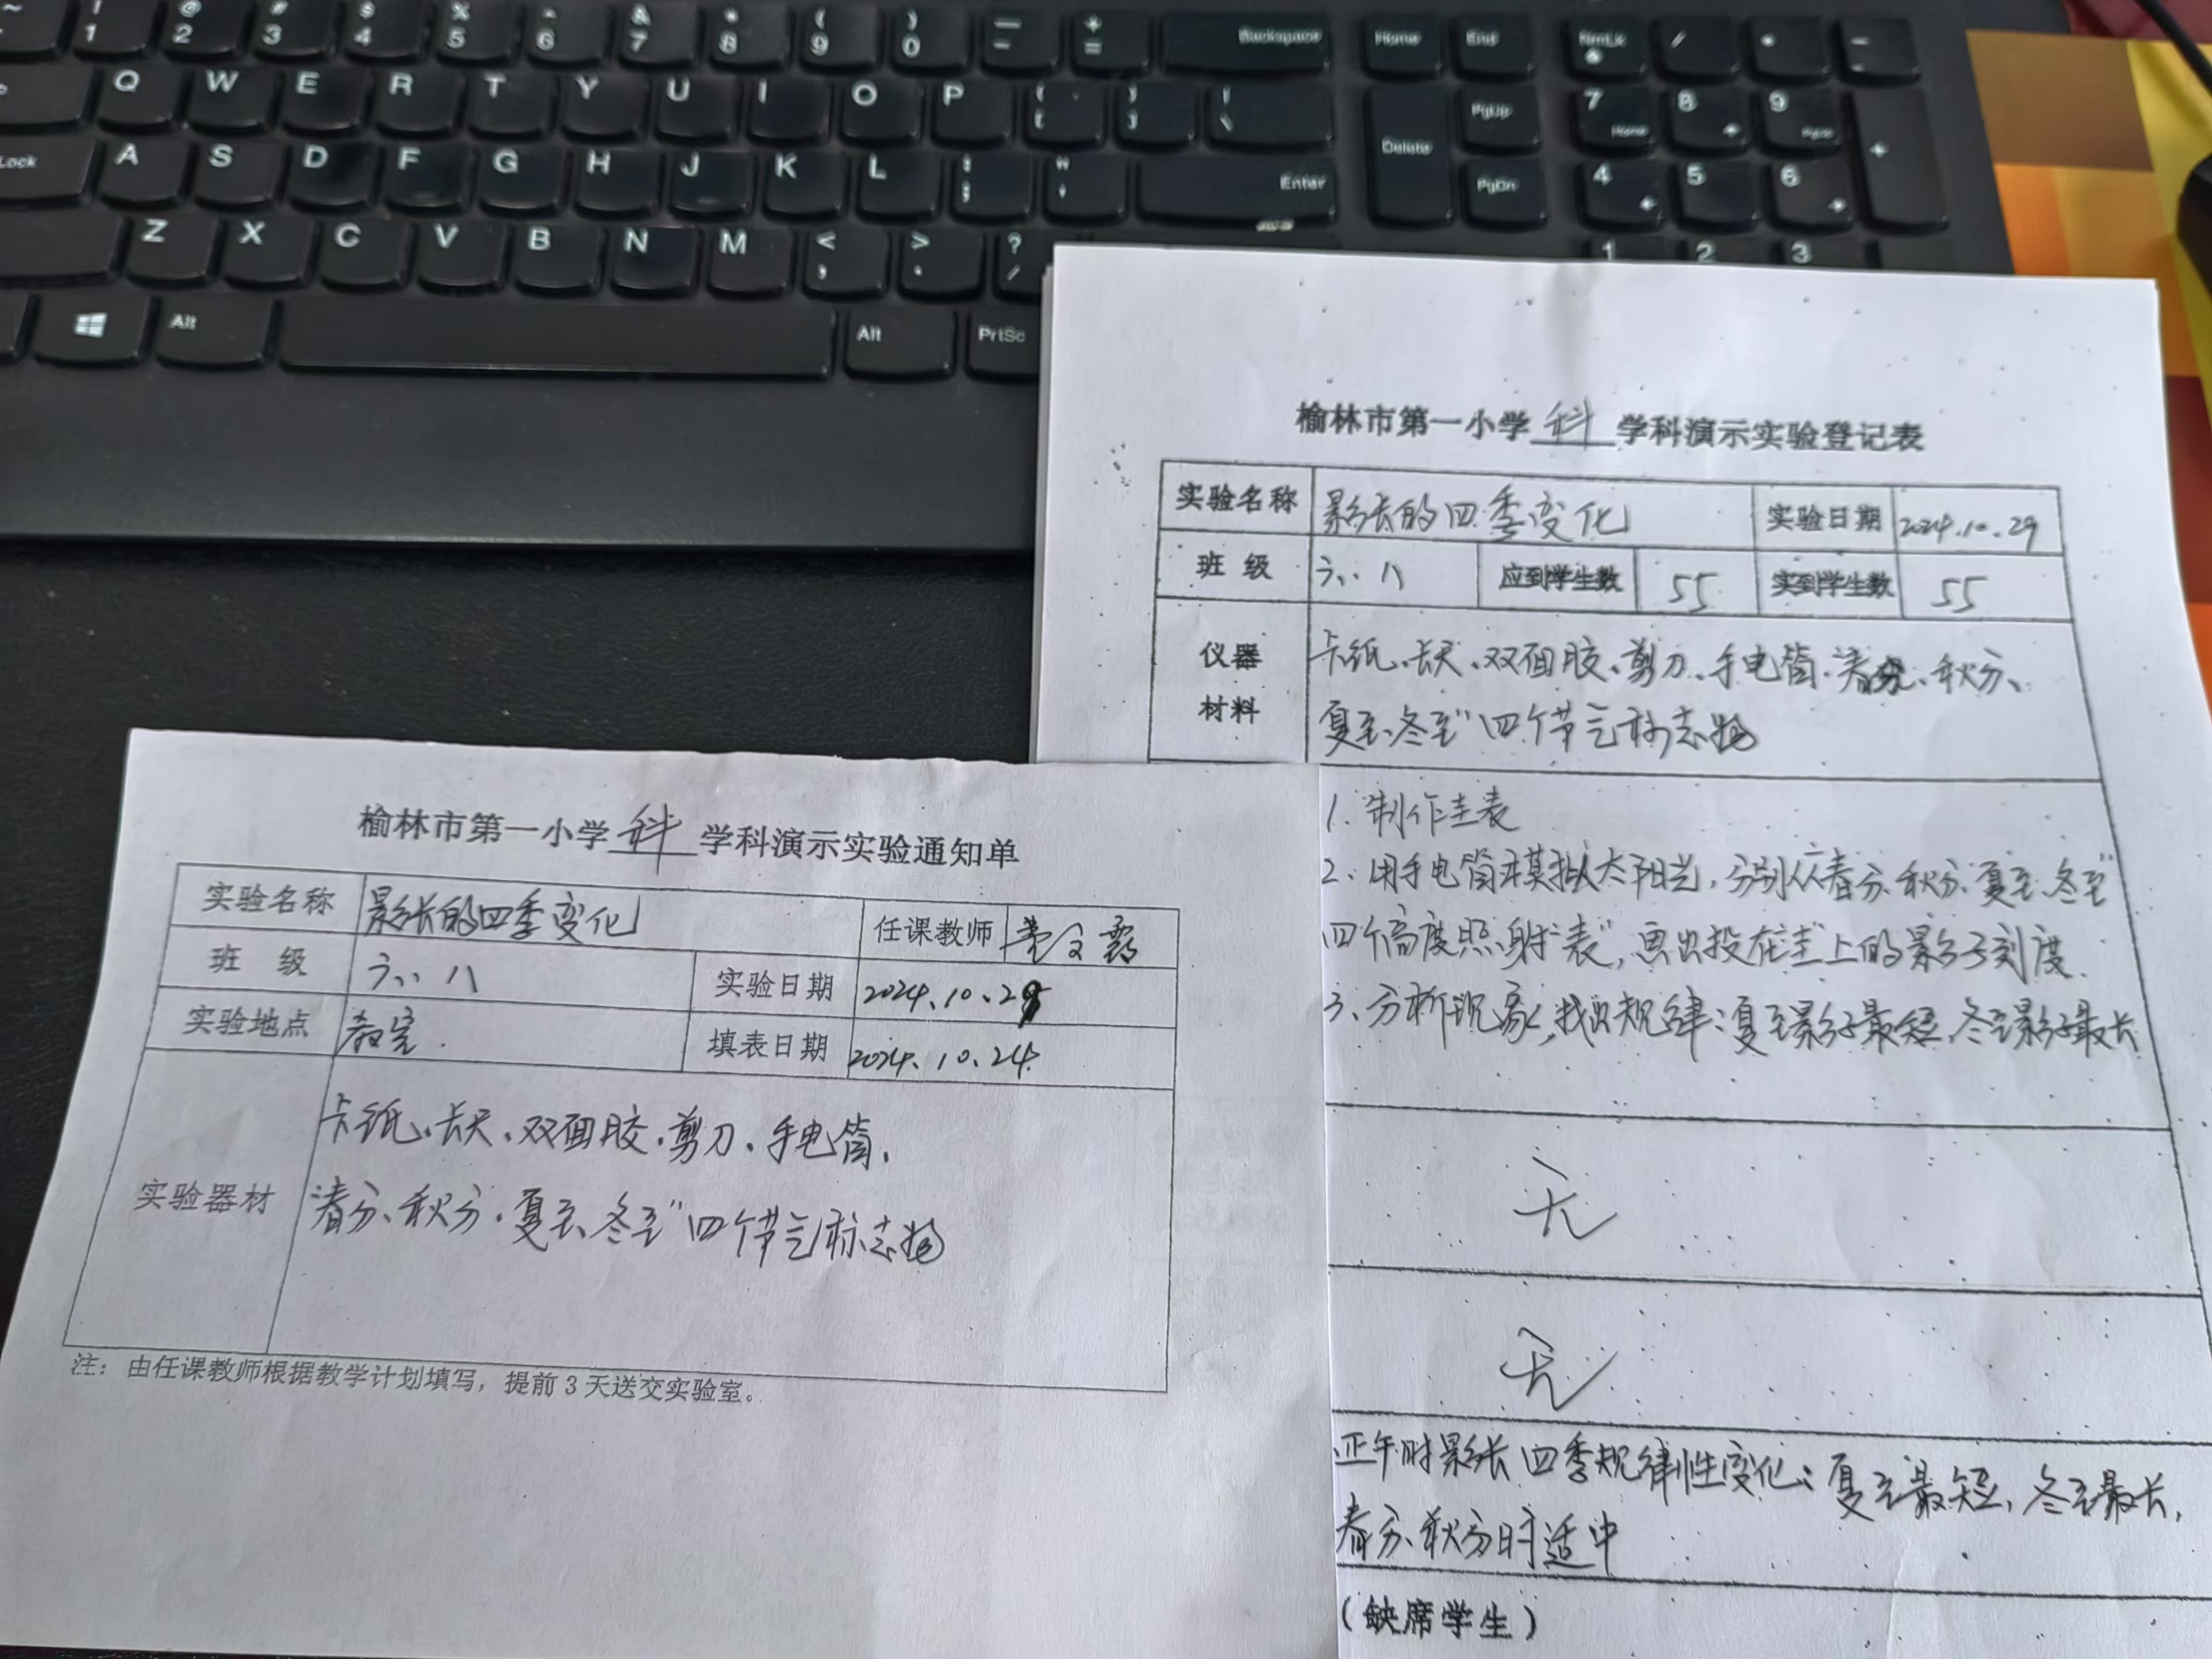 榆林市第一小学科学科演示实验登记表
实验名称 影长的四季变化 实验日期 2024.10.29
班级 六.八 应到学生数 55 实到学生数 55
仪器材料 卡纸、长尺、双面胶、剪刀、手电筒、春分、秋分、
夏至、冬至"四个节气标志物
1. 制作圭表
2. 用手电筒模拟太阳光,分别从春分、秋分、夏至、冬至"
四个高度照射"表",画出投在"圭"上的影子刻度.
3、分析现象,找出规律:夏至影子最短、冬至影子最长
无
无
正午时影长四季规律性变化:夏至最短,冬至最长,
春分、秋分时适中
(缺席学生)
榆林市第一小学科学科演示实验通知单
实验名称 影长的四季变化 任课教师
班级 六.八 实验日期 2024.10.29
实验地点 教室. 填表日期 2024.10.24
实验器材 卡纸、长尺、双面胶、剪刀、手电筒、
春分、秋分、夏至、冬至"四个节气标志物
注:由任课教师根据教学计划填写,提前3天送交实验室。
~ ! @ # $ % ^ & * ( ) — + Backspace Home End NmLk / * -
1 2 3 4 5 6 7 8 9 0 - =
Q W E R T Y U I O P { } | \ Delete PgUp 7 Home 8 9 PgUp +
Lock A S D F G H J K L : ; " ' Enter PgDn 4 5 6
Z X C V B N M < , > . ? / 1 2 3
Alt Alt PrtSc